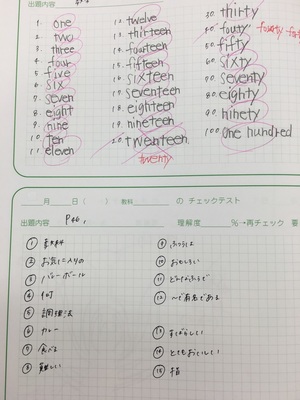 出題内容
1. one
2. two
3. three
4. four
5. five
6. six
7. seven
8. eight
9. nine
10. ten
11. eleven
12. twelve
13. thirteen
14. fourteen
15. fifteen
16. sixteen
17. seventeen
18. eighteen
19. nineteen
20. twenteen
twenty
30. thirty
40. fourty
50. fifty
60. sixty
70. seventy
80. eighty
90. ninety
100. one hundred
月 日 ( ) 教科 の チェックテスト
出題内容 P46, 理解度 %→再チェック 要
① 教科
② お気に入りの
③ バレーボール
④ 町
⑤ 調理法
⑥ カレー
⑦ 食べる
⑧ 難しい
⑨ ふつうは
⑩ おもしろい
⑪ どんなふうで
⑫ ～で有名である
⑬ すばらしい
⑭ とてもおいしい